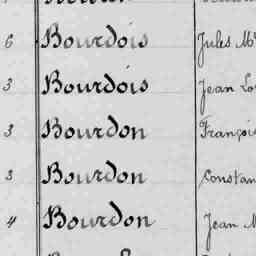 6 Bourdois Jules M
3 Bourdois Jean Lo
3 Bourdon François
3 Bourdon Constan
4 Bourdon Jean M